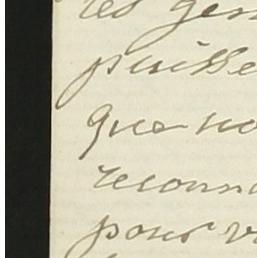 les gens
puisse
que no
reconna
pour v